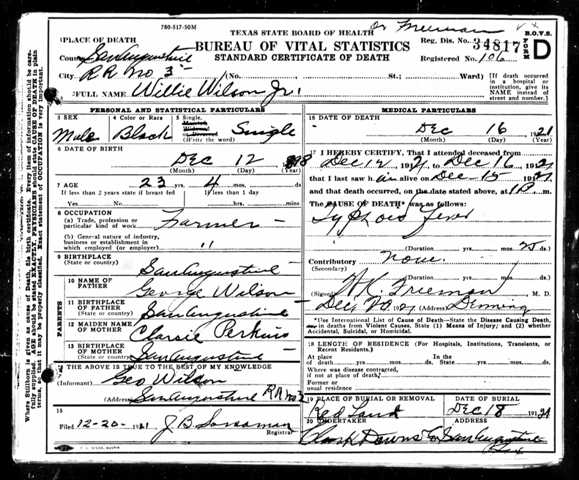 780-517-50M
TEXAS STATE BOARD OF HEALTH
Dr Freeman
B.O.V.S.
FORM D
1 PLACE OF DEATH
BUREAU OF VITAL STATISTICS
Reg. Dis. No. 34817
County San Augustine
STANDARD CERTIFICATE OF DEATH
Registered No. 106
City R R No 3 (No. St.; Ward)
(If death occurred in a hospital or institution, give its NAME instead of street and number.)
2 FULL NAME Willie Wilson Jr.
PERSONAL AND STATISTICAL PARTICULARS
3 SEX Male
4 Color or Race Black
5 Single, Married, Widowed, or Divorced Single
6 DATE OF BIRTH
Dec 12
(Month) (Day) (Year)
7 AGE 23 yrs. 4
If less than 2 years state if breast fed If less than 1 day
8 OCCUPATION
(a) Trade, profession or particular kind of work Farmer
(b) General nature of industry, business or establishment in which employed (or employer) "
9 BIRTHPLACE
(State or Country) San Augustine
10 NAME OF FATHER George Wilson
11 BIRTHPLACE OF FATHER
(State or Country) San Augustine
PARENTS
12 MAIDEN NAME OF MOTHER Classie Perkins
13 BIRTHPLACE OF MOTHER
(State or Country) San Augustine
14 THE ABOVE IS TRUE TO THE BEST OF MY KNOWLEDGE
(Informant) Geo Wilson
(Address) San Augustine RR No 2
15
Filed 12-20- 1921 J B
Registrar
MEDICAL PARTICULARS
16 DATE OF DEATH
Dec 16 1921
(Month) (Day) (Year)
17 I HEREBY CERTIFY, That I attended deceased from
Dec 12, 1921, to Dec 16 1921
that I last saw h alive on Dec 15 1921
and that death occurred, on the date stated above, at
The CAUSE OF DEATH* was as follows:
Typhoid Fever
(Duration) yrs. mos. ds.
Contributory None
(Secondary)
(Duration) yrs. mos. ds.
(Signed) Freeman M. D.
Dec 20 1921 Denning
*Use International List of Cause of Death—State the Disease Causing Death, or in deaths from Violent Causes, State (1) Means of Injury; and (2) whether Accidental, Suicidal, or Homicidal.
18 LENGTH OF RESIDENCE (For Hospitals, Institutions, Transients, or Recent Residents.)
At place of death yrs. mos. ds. In the State yrs. mos. ds.
Where was disease contracted, if not at place of death?
Former or usual residence
19 PLACE OF BURIAL OR REMOVAL Red Land
DATE OF BURIAL Dec 18 1921
20 UNDERTAKER Clark Downs Co
ADDRESS San Augustine